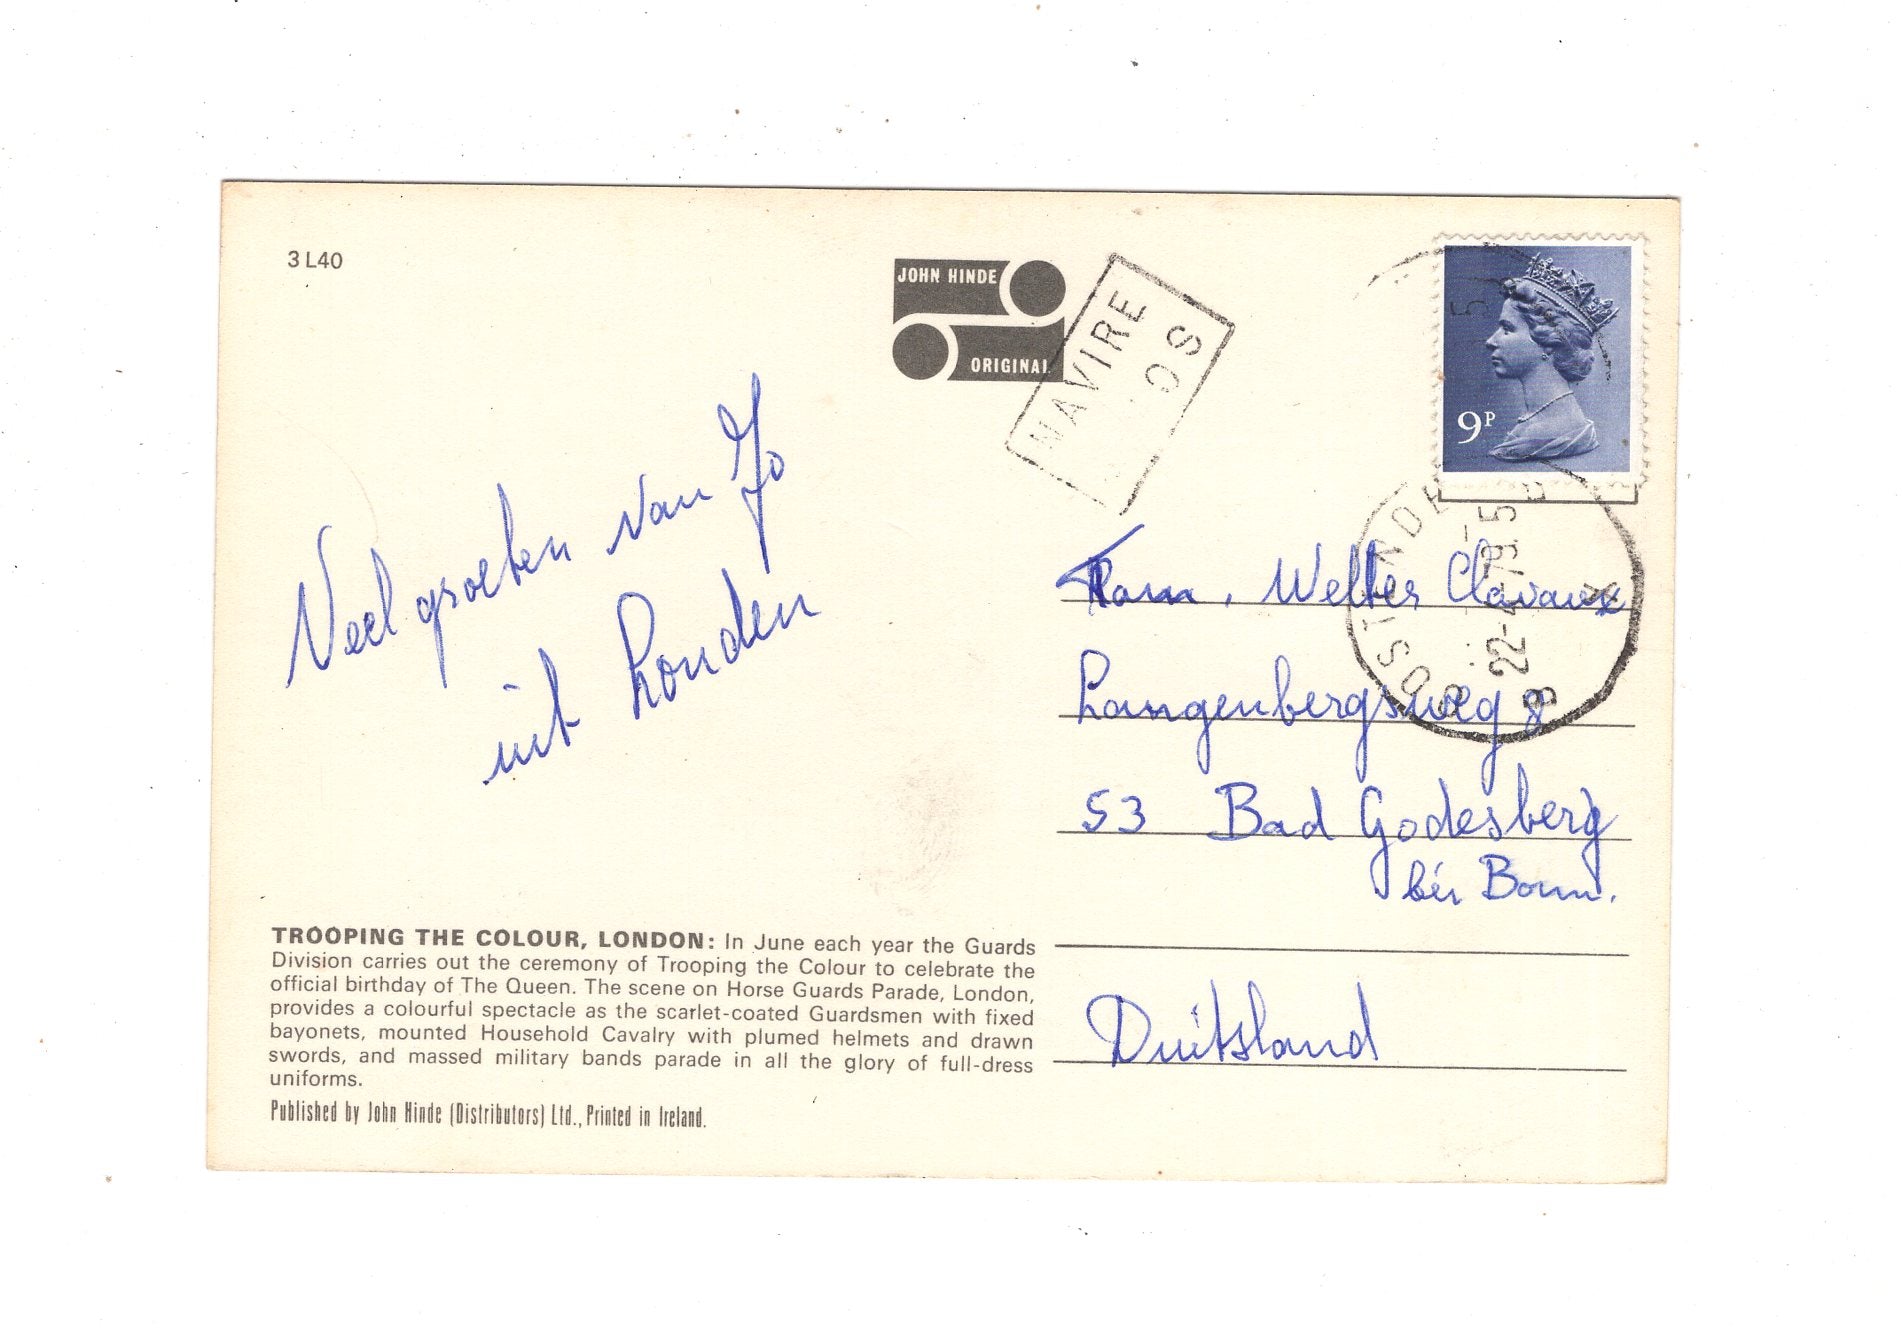 3 L40
JOHN HINDE
ORIGINAL
NAVIRE
OS
9P
OOSTENDE
22-4-79
B B
Veel groeten van Jo
uit Londen
Fam. Welter Clavaux
Langenbergsweg 8
53 Bad Godesberg
bei Bonn.
Duitsland
TROOPING THE COLOUR, LONDON: In June each year the Guards
Division carries out the ceremony of Trooping the Colour to celebrate the
official birthday of The Queen. The scene on Horse Guards Parade, London,
provides a colourful spectacle as the scarlet-coated Guardsmen with fixed
bayonets, mounted Household Cavalry with plumed helmets and drawn
swords, and massed military bands parade in all the glory of full-dress
uniforms.
Published by John Hinde (Distributors) Ltd., Printed in Ireland.